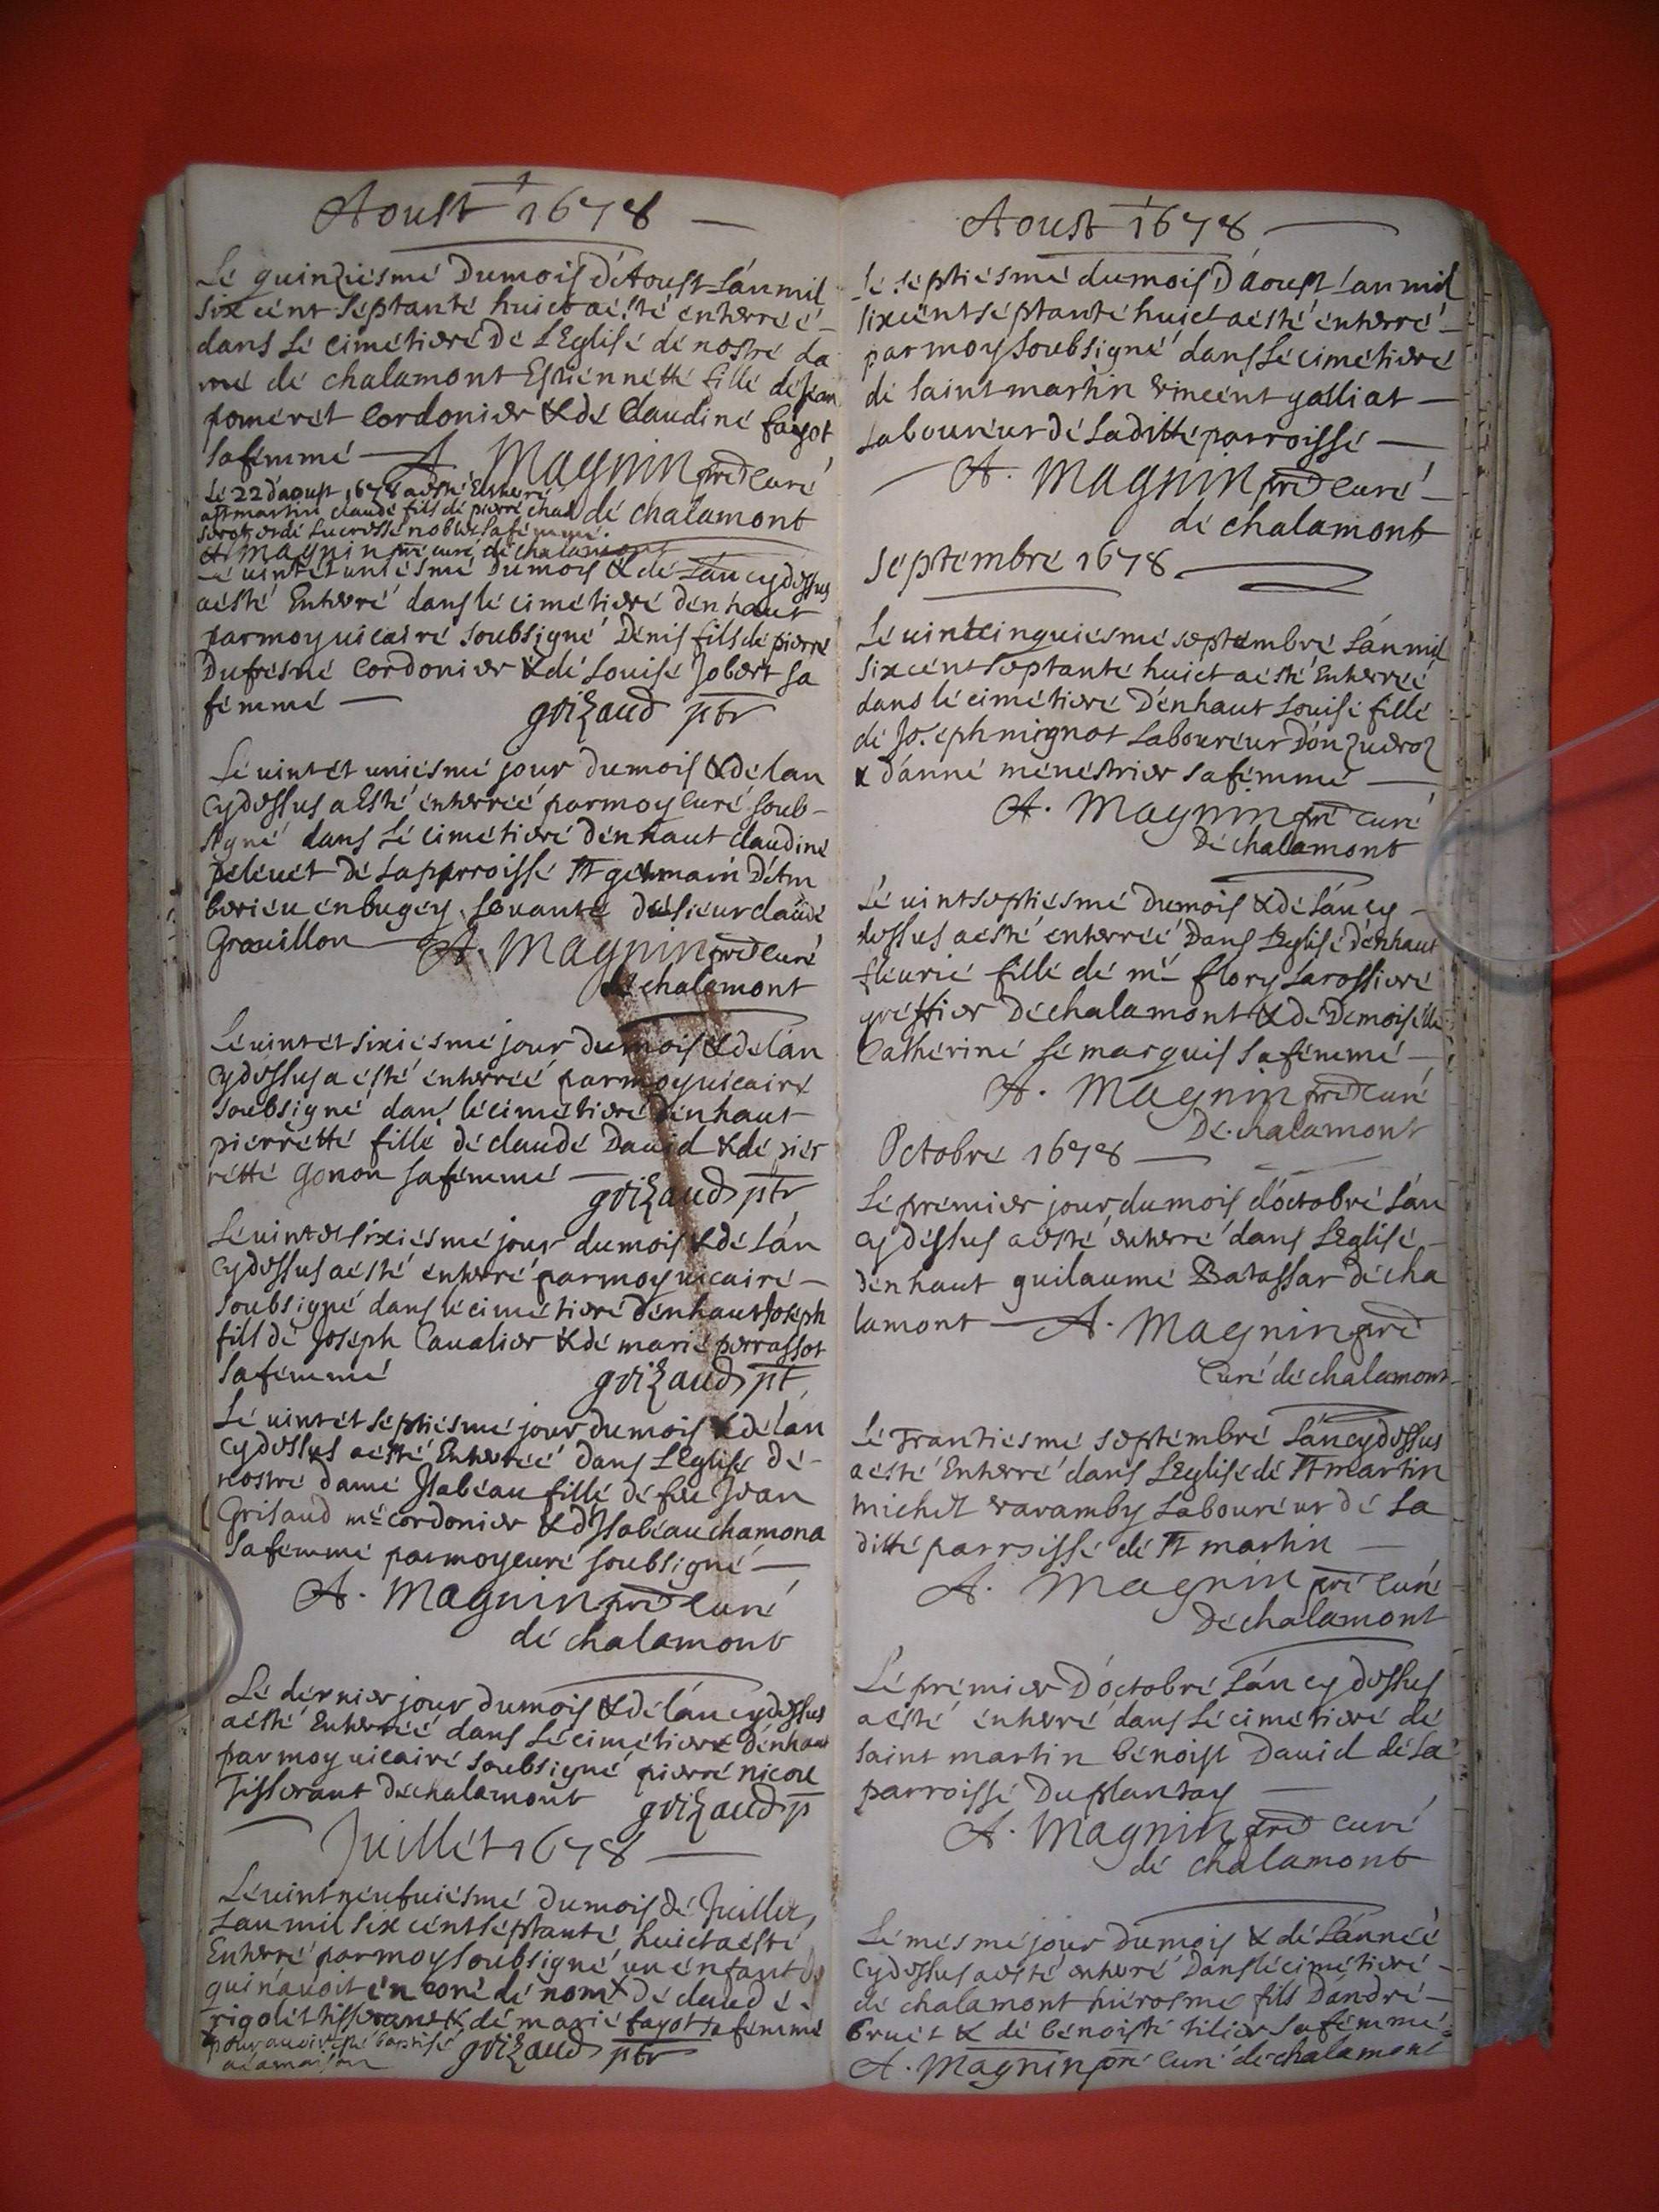 Aoust 1678
Lé quinziésmé Dumois d'Aoust L'an mil
six cént séptanté huict a ésté enterréé
dans Lé cimétiére Dé L'Eglisé dé nostré da
mé dé chalamont Estiénnétté fillé dé Jéan
pomérét cordonier & dé Claudiné fagot
sa fémmé A. Magnin pre curé
dé chalamont
Lé 22 d'aoust 1678 a esté Enterré
a st martin claudé fils dé pierré chal
A. Magnin pre curé dé chalamont
Lé vint ét uniésmé Dumois & dé L'an cydessus
a ésté Enterré dans lé cimétieré d'én haut
par moy vicairé soubsigné Dénis fils dé pierré
Dufrésné cordonier & dé Louisé Jobert sa
fémmé grizaud ptr
Lé vint ét uniésmé jour du mois & dé lan
cydessus a Esté énterréé par moy curé soub-
signé dans Lé cimétieré d'én haut claudiné
pélévét Dé La parroissé st gérmain D'ém
berieu én bugéy, sérvanté du sieur claudé
Gravillon A. Magnin pre curé
dé chalamont
Lé vint ét sixiésmé jour du mois & dé lan
cydessus a ésté énterréé par moy vicairé
soubsigné dans lé cimétieré d'én haut
piérrétté fillé dé claudé David & dé piér
rétté Gonon sa fémmé
grizaud ptr
Lé vint et sixiésmé jour du mois & dé L'an
cydessus a ésté énterré par moy vicairé
soubsigné dans lé cimétieré d'én haut Joséph
fils dé Joséph Cavalier & dé marié perrassot
sa fémmé grizaud pt
Lé vint ét séptiésmé jour du mois & dé lan
cydessus a ésté Enterréé dans L'Eglisé dé
nostré damé Ysabéau fillé dé féu Jean
Grisaud mé cordonier & d'Ysabéau chamona
sa fémmé par moy curé soubsigné
A. Magnin pre curé
dé chalamont
Lé dérnier jour du mois & dé l'an cydessus
a ésté Enterréé dans Lé cimétieré d'én haut
par moy vicairé soubsigné pierré nicou
Tisserant dé chalamont grizaud p
Juillét 1678
Lé vint neufviésmé du mois dé Juillet,
L'an mil six cént séptanté huict a ésté
Enterré par moy soubsigné un énfant
qui n'avoit éncoré dé nom & dé claudé
rigolét tisserant & dé marié fayot sa fémmé
pour avoir esté baptisé
a la maison grizaud ptr
Aoust 1678
Lé séptiésmé du mois D'aoust L'an mil
six cént séptanté huict a ésté énterré
par moy soubsigné dans Lé cimétieré
dé saint martin vincént galliat
Labouréur dé Laditté parroissé
A. Magnin pre curé
dé chalamont
Séptémbré 1678
Lé vintcinquiésmé septembré L'an mil
six cént septanté huict a ésté Enterréé
dans lé cimétieré D'én haut Louisé fillé
dé Joséph mignot Labouréur D'onzuéroz
& d'anné ménéstrier sa fémmé
A. Magnin pre curé
Dé chalamont
Lé vint séptiésmé Dumois & dé L'an cy
dessus a ésté énterréé Dans L'églisé d'én haut
fléurié fillé dé mé flory Larossieré
gréffier Dé chalamont & dé Démoiséllé
Cathériné Lé marquis sa fémmé
A. Magnin pre curé
Dé chalamont
Octobré 1678
Lé prémier jour du mois d'octobré L'an
cydéssus a esté énterré dans L'Eglisé
d'én haut guilaumé Batassar dé cha
lamont A. Magnin pre
Curé dé chalamont
Lé Trantiésmé séptémbré L'an cydessus
a ésté Enterré dans L'Eglisé dé st martin
michél varamby Labouréur dé La
ditté parroissé dé st martin
A. Magnin pre curé
Dé chalamont
Lé prémier D'octobré L'an cydessus
a ésté énterré dans Lé cimétieré dé
saint martin bénoist David dé La
parroissé Du plantay
A. Magnin pre curé
dé chalamont
Lé mésmé jour Dumois & dé L'annéé
cydessus a esté énterré Dans lé cimétieré
dé chalamont hiérosmé fils D'andré
bruét & dé bénoisté tilier sa fémmé
A. Magnin pre curé dé chalamont